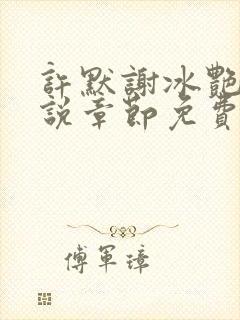 許默謝冰艷
說章節免費
傅軍璋